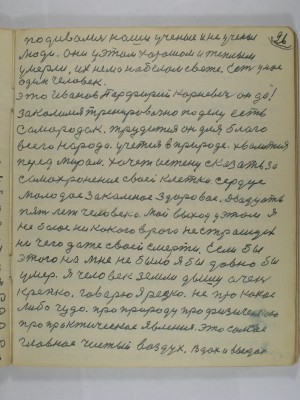 26
подивились наши ученые и не ученые
люди. они у этом хорошом и теплым
умерли, их нема на белом свете. Есть у нас
один человек.
это Иванов Парфирий Корневич он да!
закалился тренировано по делу есть
самородок. трудится он для благо
всего народа. учится в природе. хвалится
перед миром. хочет истену сказать за
самохронение своей клетки. сердце
молодое закаленое здоровае. двадцать
пять лет человека. мой выход у этом я
не боюсь ни какого врога не страшусь
ни чего даже своей смерти. Если бы
этого на мне не было я бы давно бы
умер. я человек земли дышу очень
крепко. говорю я резко. не про какое
либо чудо. про природу про физическою
про практическое явления. это самое
главное чистый воздух.